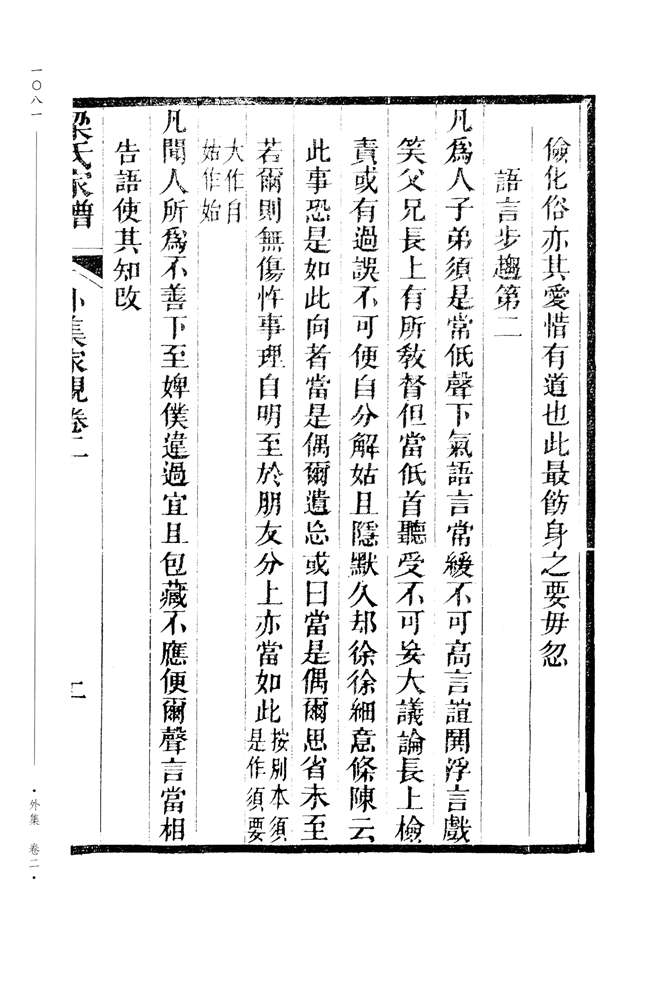 儉化俗亦其愛惜有道也此最飭身之要毋忽
語言步趨第二
凡爲人子弟須是常低聲下氣語言常緩不可高言諠鬨浮言戲
笑父兄長上有所敎督但當低首聽受不可妄大議論長上檢
責或有過誤不可便自分解姑且隱默久却徐徐細意條陳云
此事恐是如此向者當是偶爾遺忘或曰當是偶爾思省未至
若爾則無傷忤事理自明至於朋友分上亦當如此按別本須
是作須要
大作自
姑作始
凡聞人所爲不善下至婢僕違過宜且包藏不應便爾聲言當相
告語使其知改
梁氏家譜
外集家規卷二
二
一〇八一
·外集 卷二·